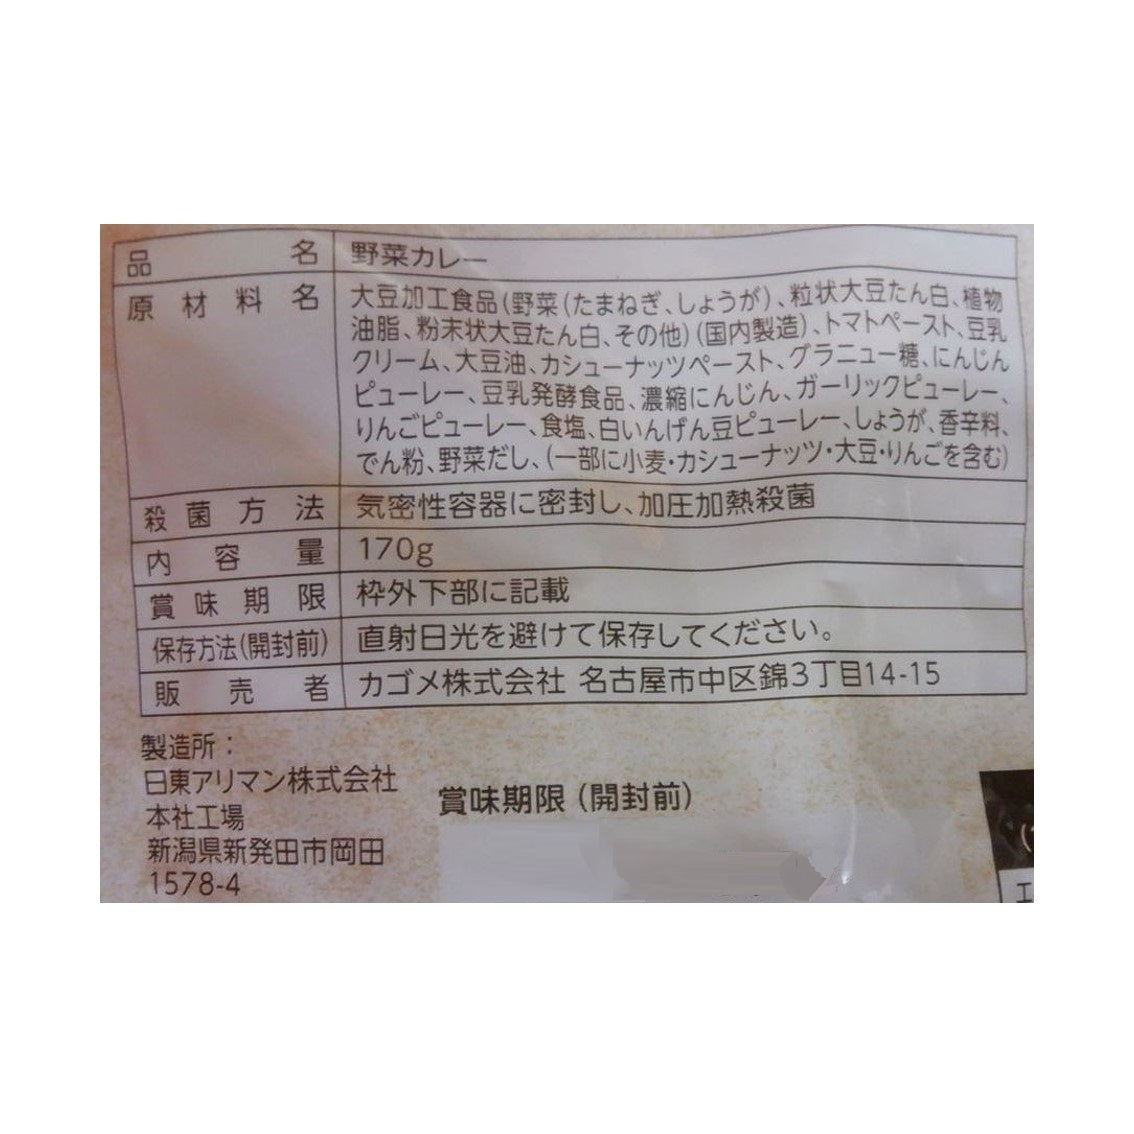 品名 野菜カレー
原材料名 大豆加工食品(野菜(たまねぎ、しょうが)、粒状大豆たん白、植物
油脂、粉末状大豆たん白、その他)(国内製造)、トマトペースト、豆乳
クリーム、大豆油、カシューナッツペースト、グラニュー糖、にんじん
ピューレー、豆乳発酵食品、濃縮にんじん、ガーリックピューレー、
りんごピューレー、食塩、白いんげん豆ピューレー、しょうが、香辛料、
でん粉、野菜だし、(一部に小麦・カシューナッツ・大豆・りんごを含む)
殺菌方法 気密性容器に密封し、加圧加熱殺菌
内容量 170g
賞味期限 枠外下部に記載
保存方法(開封前) 直射日光を避けて保存してください。
販売者 カゴメ株式会社 名古屋市中区錦3丁目14-15
製造所:
日東アリマン株式会社
本社工場
新潟県新発田市岡田
1578-4
賞味期限(開封前)